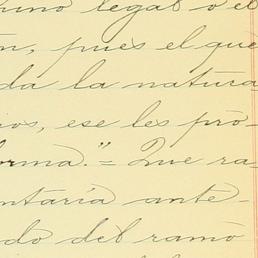 uno legal o el
n, pues el que
da la natura
os, ese les pro-
orma." = Que ra-
ntaria ante-
do del ramo